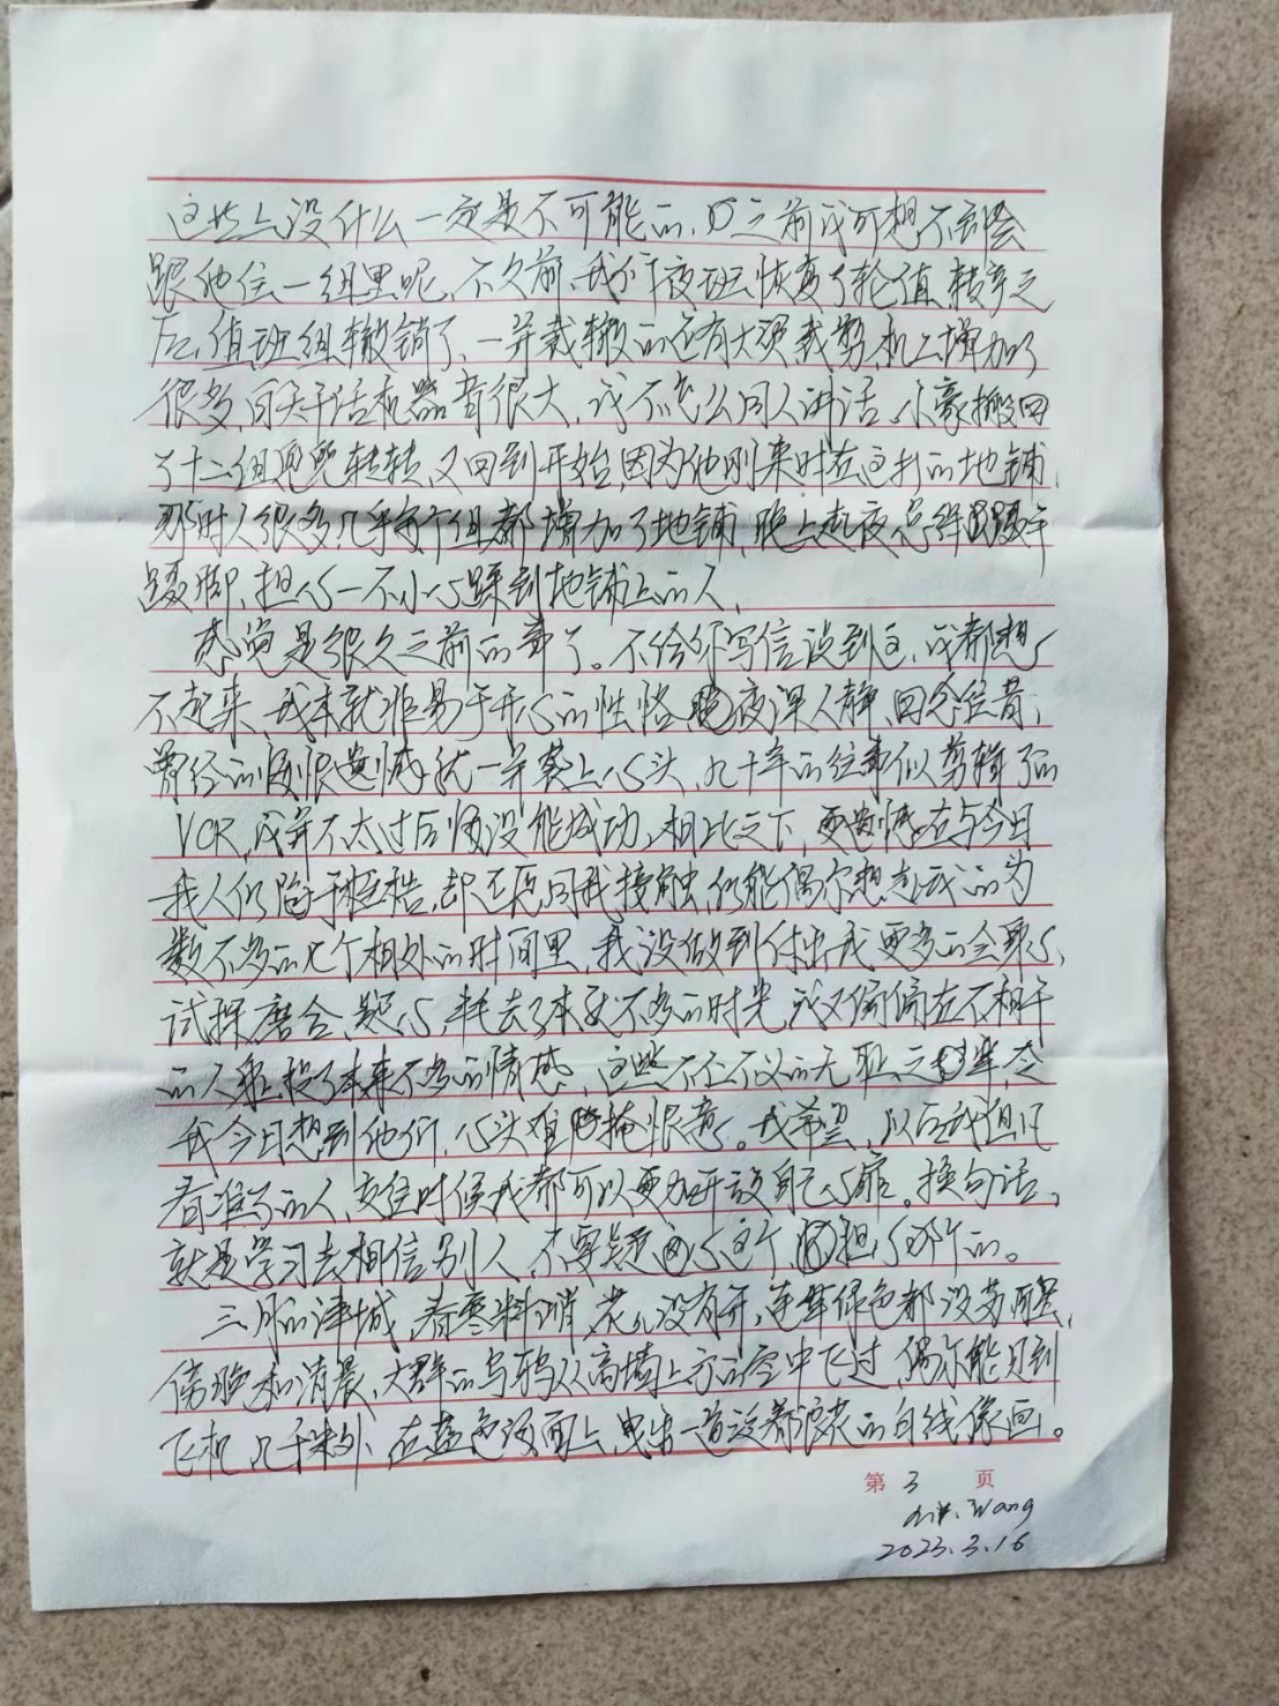 这世上没什么一定是不可能的，之前我可想不到会
跟他住一组里呢，不久前，我们年夜班恢复了轮值，转辛之
后，值班组撤销了，一并裁撤的还有大项裁剪，机工增加了
很多，白天干活机器音很大，我不怎么同人讲话。小豪搬回
了十二组，兜兜转转，又回到开始，因为他刚来时在这打的地铺，
那时人很多，几乎每个组都增加了地铺，晚上起夜总得蹑手
蹑脚，担心一不小心踩到地铺上的人，
感觉是很久之前的事了。不给你写信谈到这，我都想
不起来，我本就非易于开心的性格，晚夜深人静，回念往昔，
曾经的悔恨遗憾就一并袭上心头，九十年的往事似剪辑了的
VCR，我并不太过后悔没能成功，相比之下，更遗憾在与今日
我人仍陷于桎梏，却还愿同我接触，仍能偶尔想起我的为
数不多的几个相处的时间里，我没做到付出我更多的全部心，
试探磨合、疑心，耗去了本就不多的时光，我又偏偏在不相干
的人身上投了本来不多的情感，这些不仁不义的无耻之辈，令
我今日想到他们，心头难掩恨意。我希望，以后我但凡
看准了的人，交往时候我都可以更加开放自己心扉。换句话，
就是学习去相信别人，不要疑心这个，担心那个的。
三月的津城，春寒料峭，花儿没有开，连草绿色都没苏醒，
傍晚和清晨，大群的乌鸦从高墙上方的空中飞过，偶尔能见到
飞机，几千米外，在蓝色海面上，曳出一道没着浪花的白线像画。
第 3 页
Wang
2023.3.16